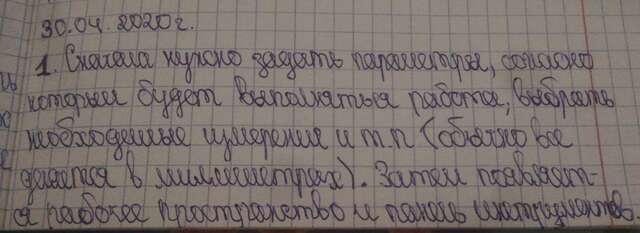 30.04.2020г.
1. Сначала нужно задать параметры, согласно
которым будет выполняться работа, выбрать
необходимые измерения и т.п (обычно все
делается в миллиметрах). Затем появляет-
ся рабочее пространство и панель инструментов.